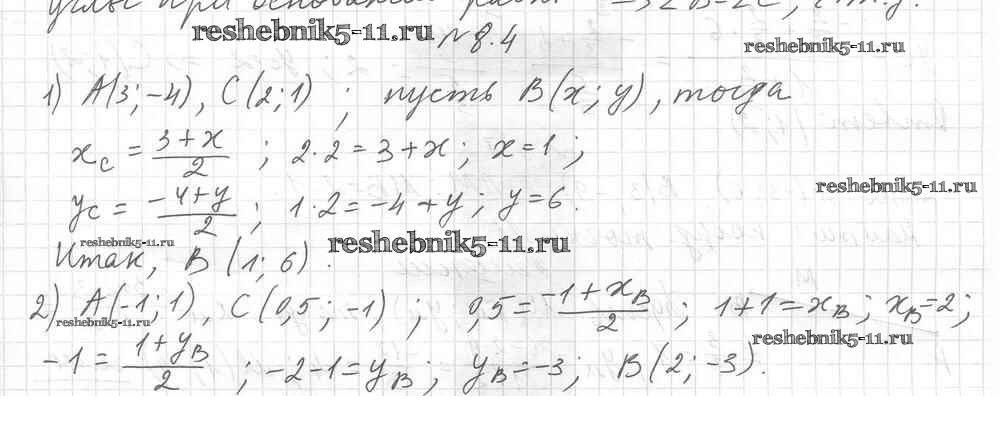 углы при основании равны
reshebnik5-11.ru №8.4 reshebnik5-11.ru
1) A(3;-4), C(2;1); пусть B(x;y), тогда
x_C = (3+x)/2; 2·2=3+x; x=1;
reshebnik5-11.ru
y_C = (-4+y)/2; 1·2=-4+y; y=6.
reshebnik5-11.ru reshebnik5-11.ru
Итак, B(1;6).
2) A(-1;1), C(0,5;-1); 0,5=(-1+x_B)/2; 1+1=x_B; x_B=2;
reshebnik5-11.ru reshebnik5-11.ru
-1=(1+y_B)/2; -2-1=y_B; y_B=-3; B(2;-3).